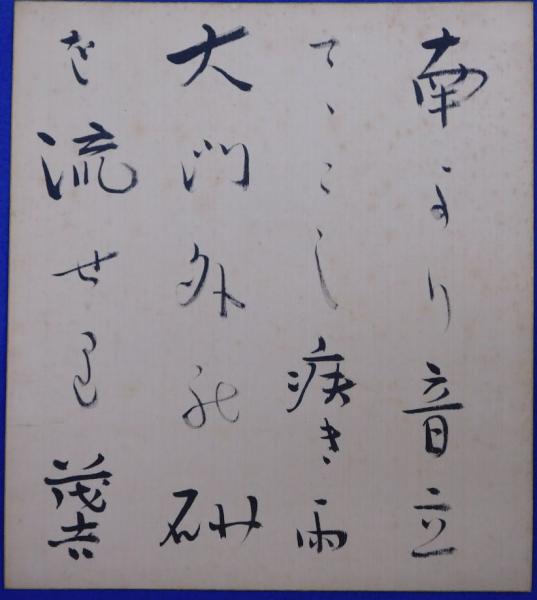 南より音立
てゝこし疾き雨
大門外の砂
を流せり
茂吉